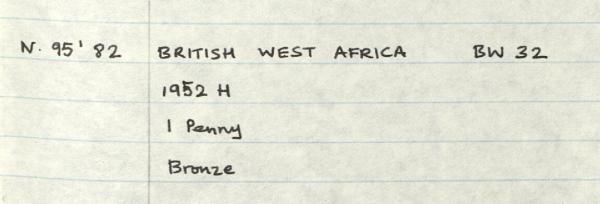 N. 95' 82 BRITISH WEST AFRICA BW 32
1952 H
1 Penny
Bronze